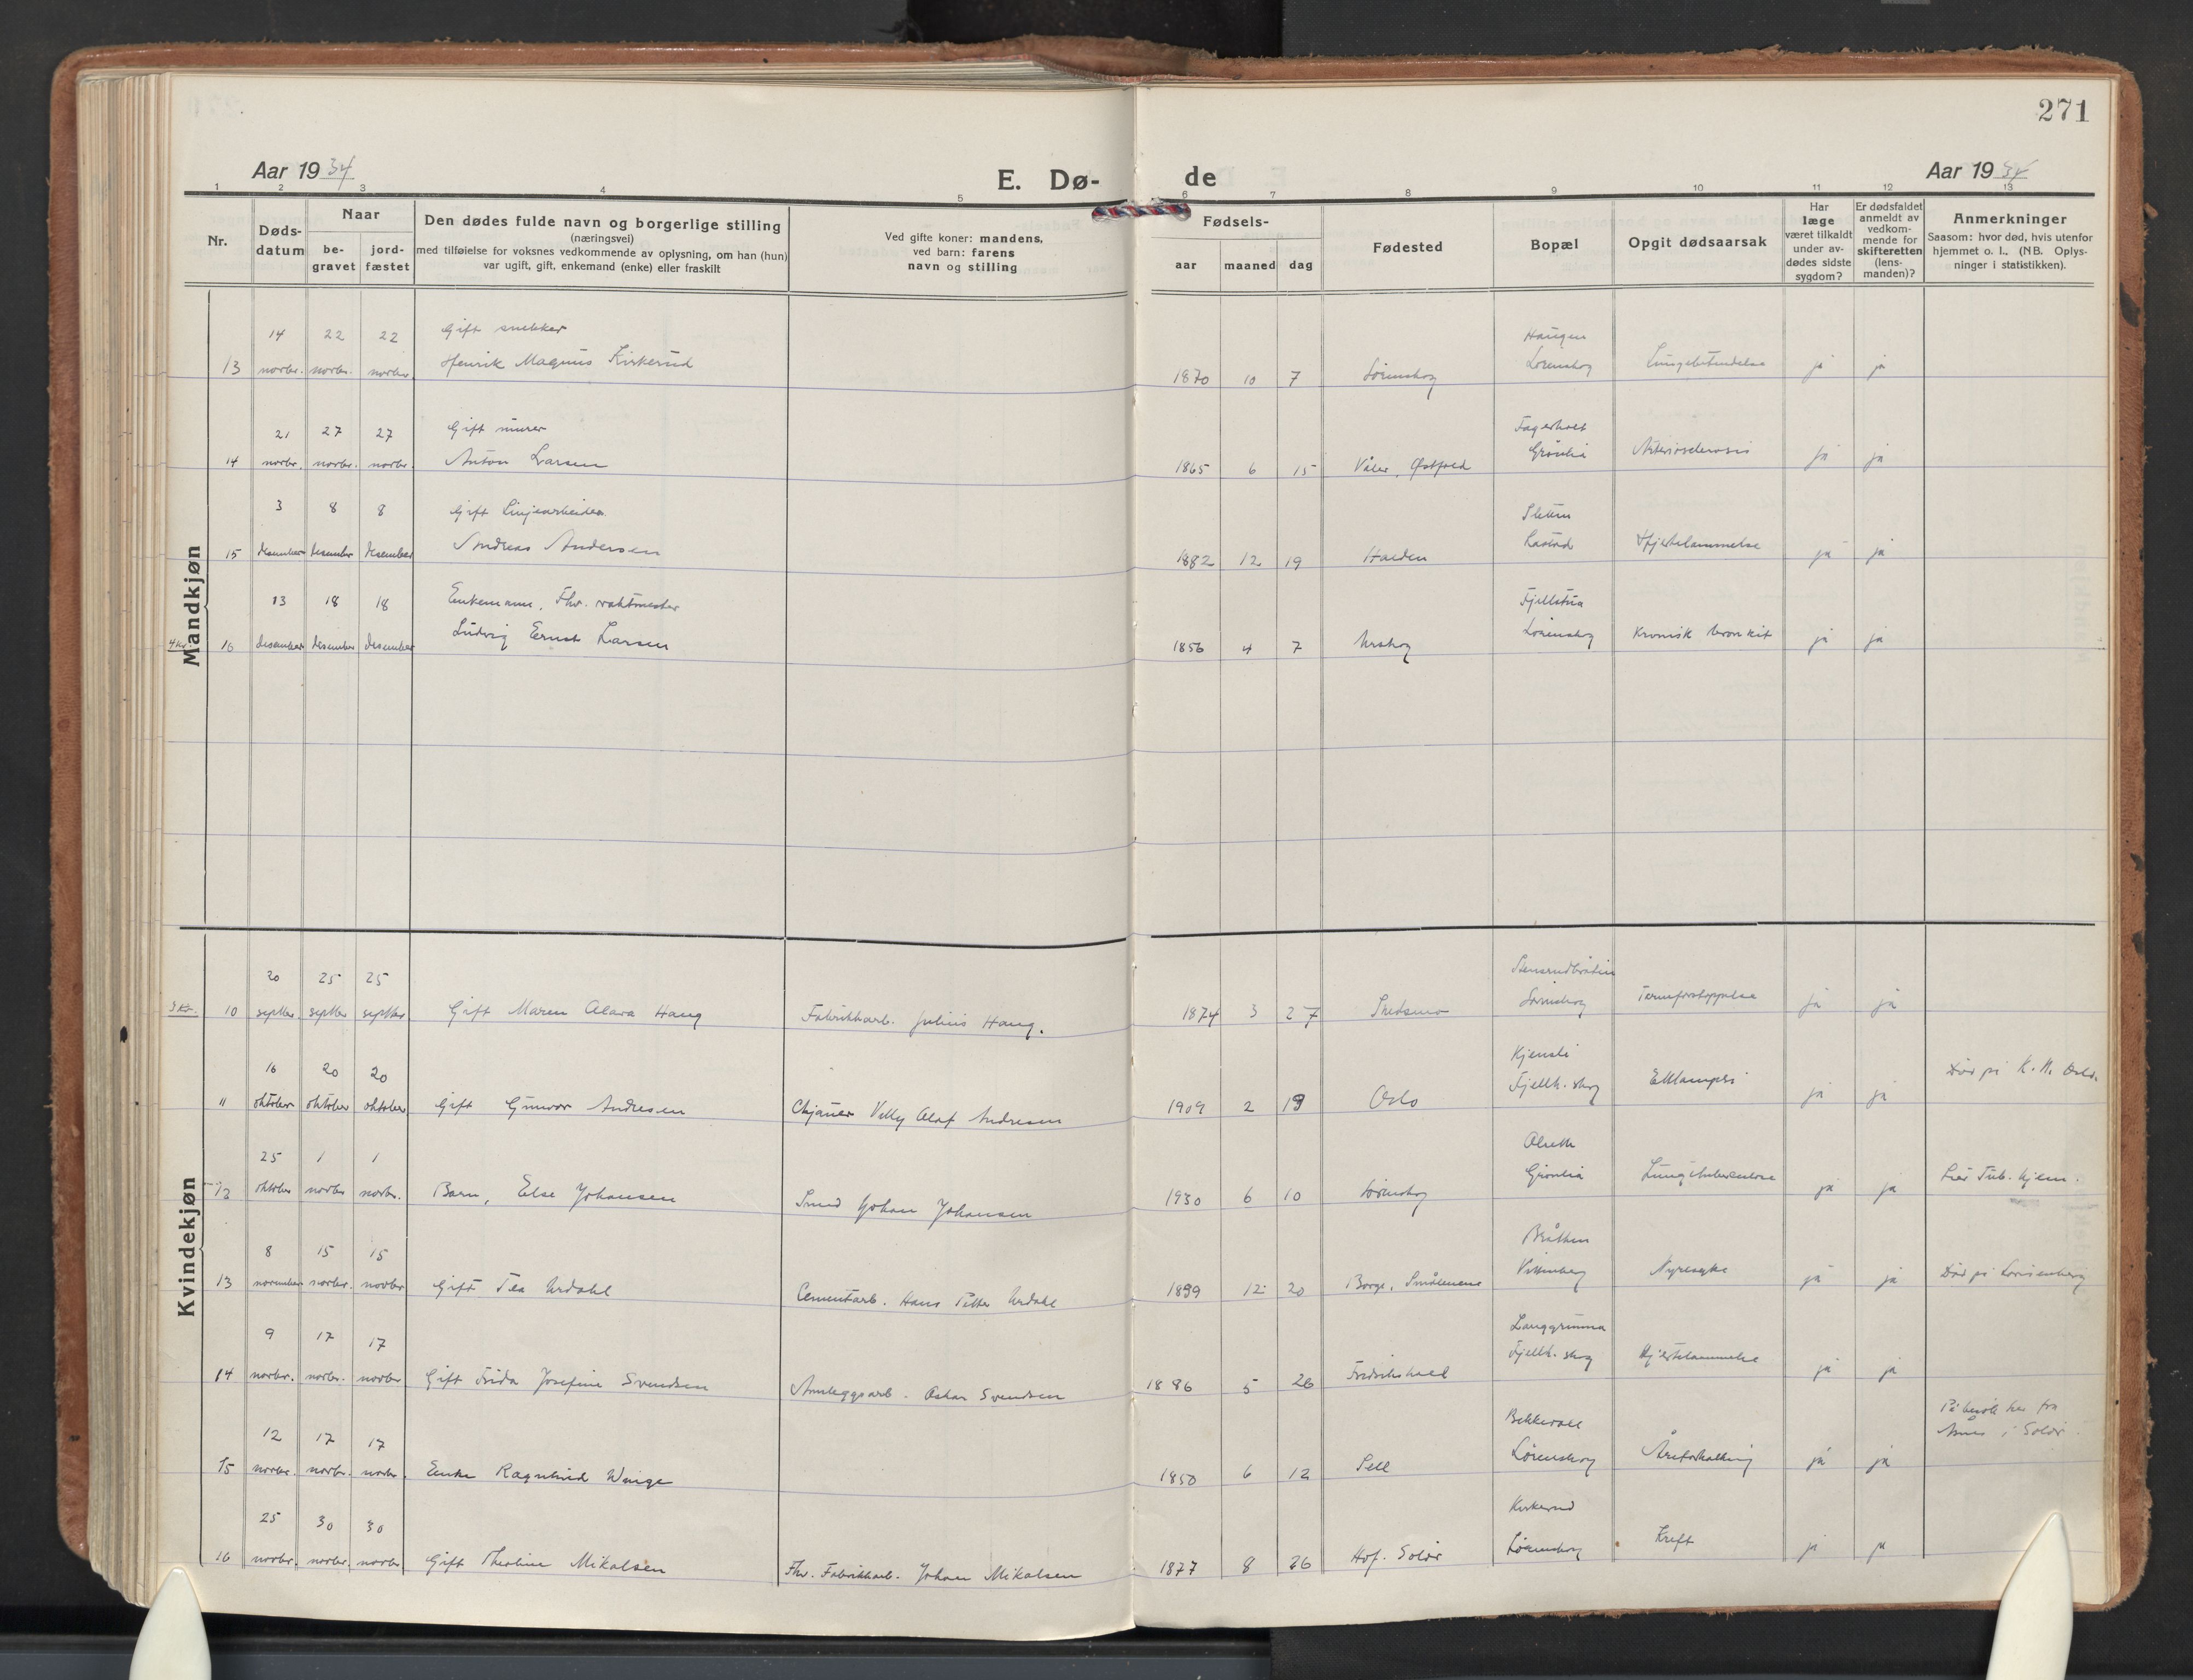 271
Aar 19 34
E. Dø-
de
Aar 19 34
1 2 3 4 5 6 7 8 9 10 11 12 13
Nr.
Døds-
datum
Naar
be-
gravet
jord-
fæstet
Den dødes fulde navn og borgerlige stilling
(næringsvei)
med tilføielse for voksnes vedkommende av oplysning, om han (hun)
var ugift, gift, enkemand (enke) eller fraskilt
Ved gifte koner: mandens,
ved barn: farens
navn og stilling
Fødsels-
aar maaned dag
Fødested
Bopæl
Opgit dødsaarsak
Har
læge
været tilkaldt
under av-
dødes sidste
sygdom?
Er dødsfaldet
anmeldt av
vedkom-
mende for
skifteretten
(lens-
manden)?
Anmerkninger
Saasom: hvor død, hvis utenfor
hjemmet o. l., (NB. Oplys-
ninger i statistikken).
Mandkjøn
14 22 22 Gift snekker Haugen
13 novbr. novbr. novbr. Henrik Magnus Kirkerud 1870 10 7 Lørenskog Lørenskog Lungebetendelse ja ja
21 27 27 Gift murer Fagerholt
14 novbr. novbr. novbr. Anton Larsen 1865 6 15 Våler, Østfold Grønlia Arteriosclerosis ja ja
3 8 8 Gift Linjearbeider Sletten
15 desember desember desember Andreas Andersen 1882 12 19 Halden Hjertelammelse ja ja
13 18 18 Enkemann, Fhv. vaktmester Fjellstua
4 kr. 16 desember desember desember Ludvig Ernst Larsen 1856 4 7 Urskog Lørenskog Kronisk bronkit ja ja
Kvindekjøn
20 25 25 Stensrudbråtin
3 kr. 10 septbr. septbr. septbr. Gift Maren Olava Haug Fabrikkarb. Julius Haug. 1874 3 27 Skedsmo Lørenskog Tarmforstoppelse ja ja
16 20 20 Kjensli
11 oktober oktober oktober Gift Gunvor Andresen Chjåuer Villy Olaf Andresen 1909 2 19 Oslo Fjellh. skog Eklampsi ja ja Død på K. K. Oslo.
25 1 1
12 oktober novbr. novbr. Barn, Else Johansen Smed Johan Johansen 1930 6 10 Lørenskog Grønlia Lungetuberculose ja ja Lier Tub. hjem.
8 15 15 Bråthen
13 november novbr. novbr. Gift Tea Urdahl Cementarb. Hans Petter Urdahl 1899 12 20 Borge, Smålenene Vittenberg Nyresyke ja ja Død på Lovisenberg
9 17 17 Langgrunna
14 novbr. novbr. novbr Gift Frida Josefine Svendsen Anleggsarb. Oskar Svendsen 1886 5 26 Fredrikshald Fjellh. skog Hjertelammelse ja ja
12 17 17 Bekkevoll På besøk her fra
15 novbr. novbr. novbr. Enke Ragnhild Winge 1850 6 12 Sell Lørenskog Åreforkalkning ja ja Åsnes i Solør.
25 30 30 Kirkerud
16 novbr. novbr. novbr Gift Theoline Mikalsen Fhv. Fabrikkarb. Johan Mikalsen 1877 8 26 Hof. Solør Lørenskog Kreft ja ja